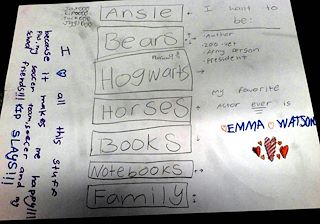 Ansle
Bears
Hogwarts
Horses
Books
Notebooks
Family
I want to
be:
-Author
-zoo vet
-Army person
-president
my favorite
actor ever is
EMMA WATSON
I all this stuff
because it makes me happy!!!!
soccer and my
school friends!!! KIP SLAYS!!!